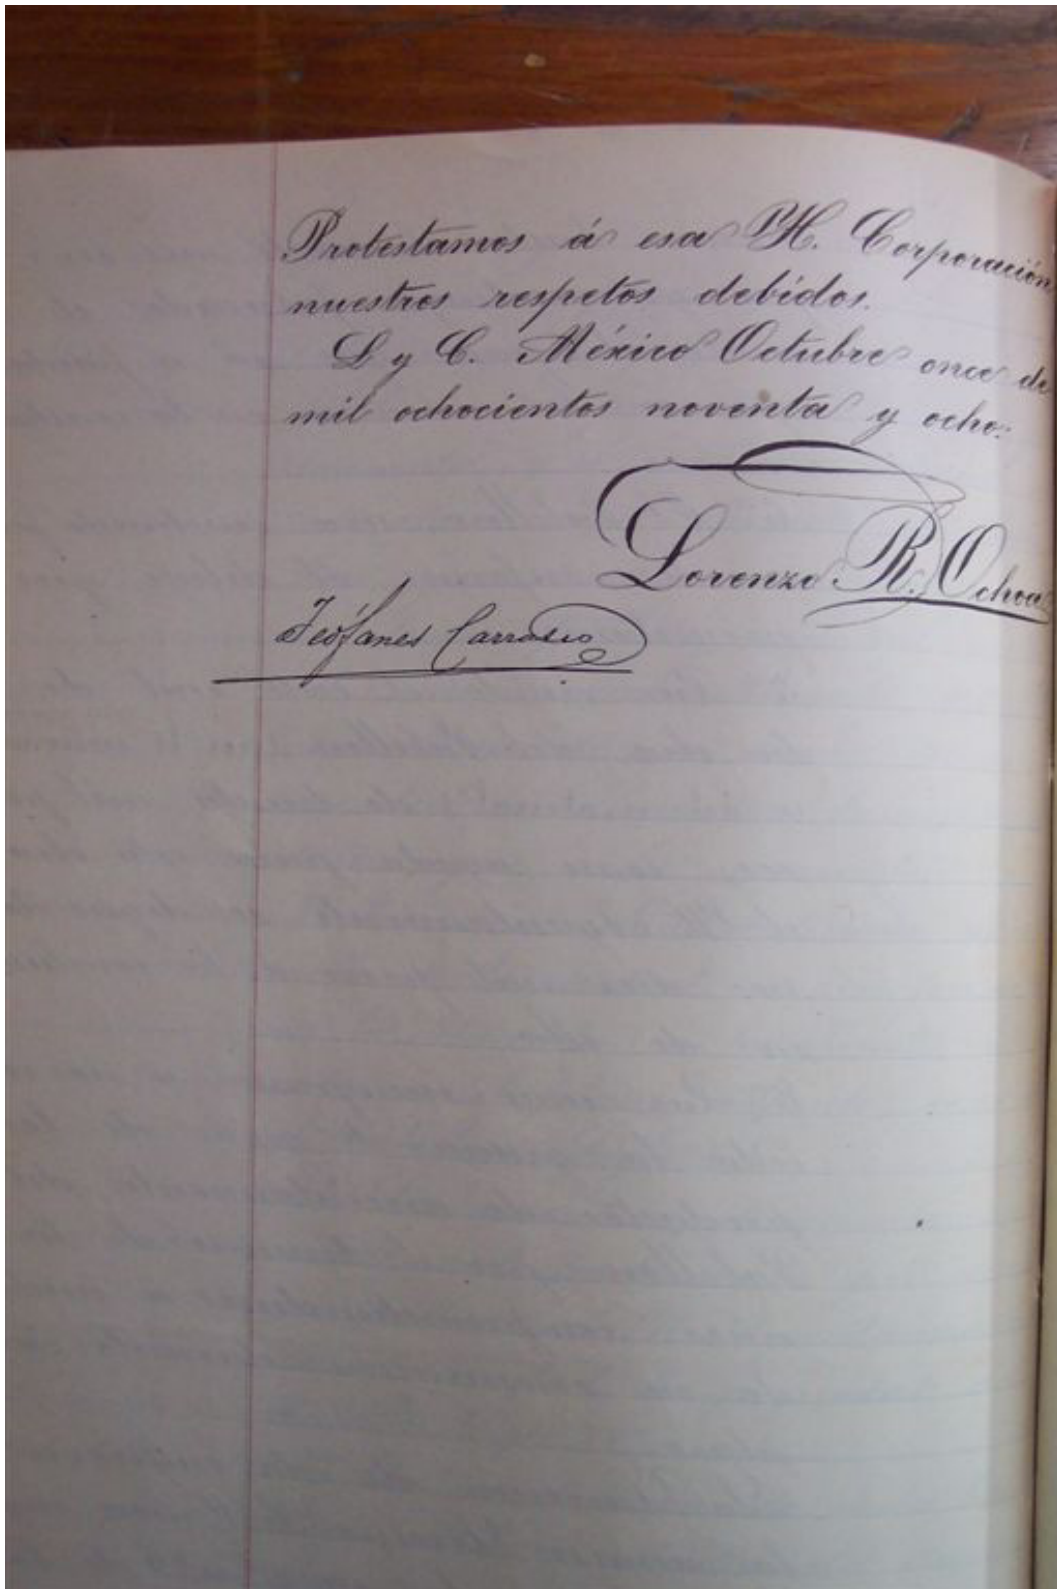 Protestamos á esa H. Corporación
nuestros respetos debidos.
L y C. México Octubre once de
mil ochocientos noventa y ocho.
Lorenzo R. Ochoa
Teófanes Carrasco